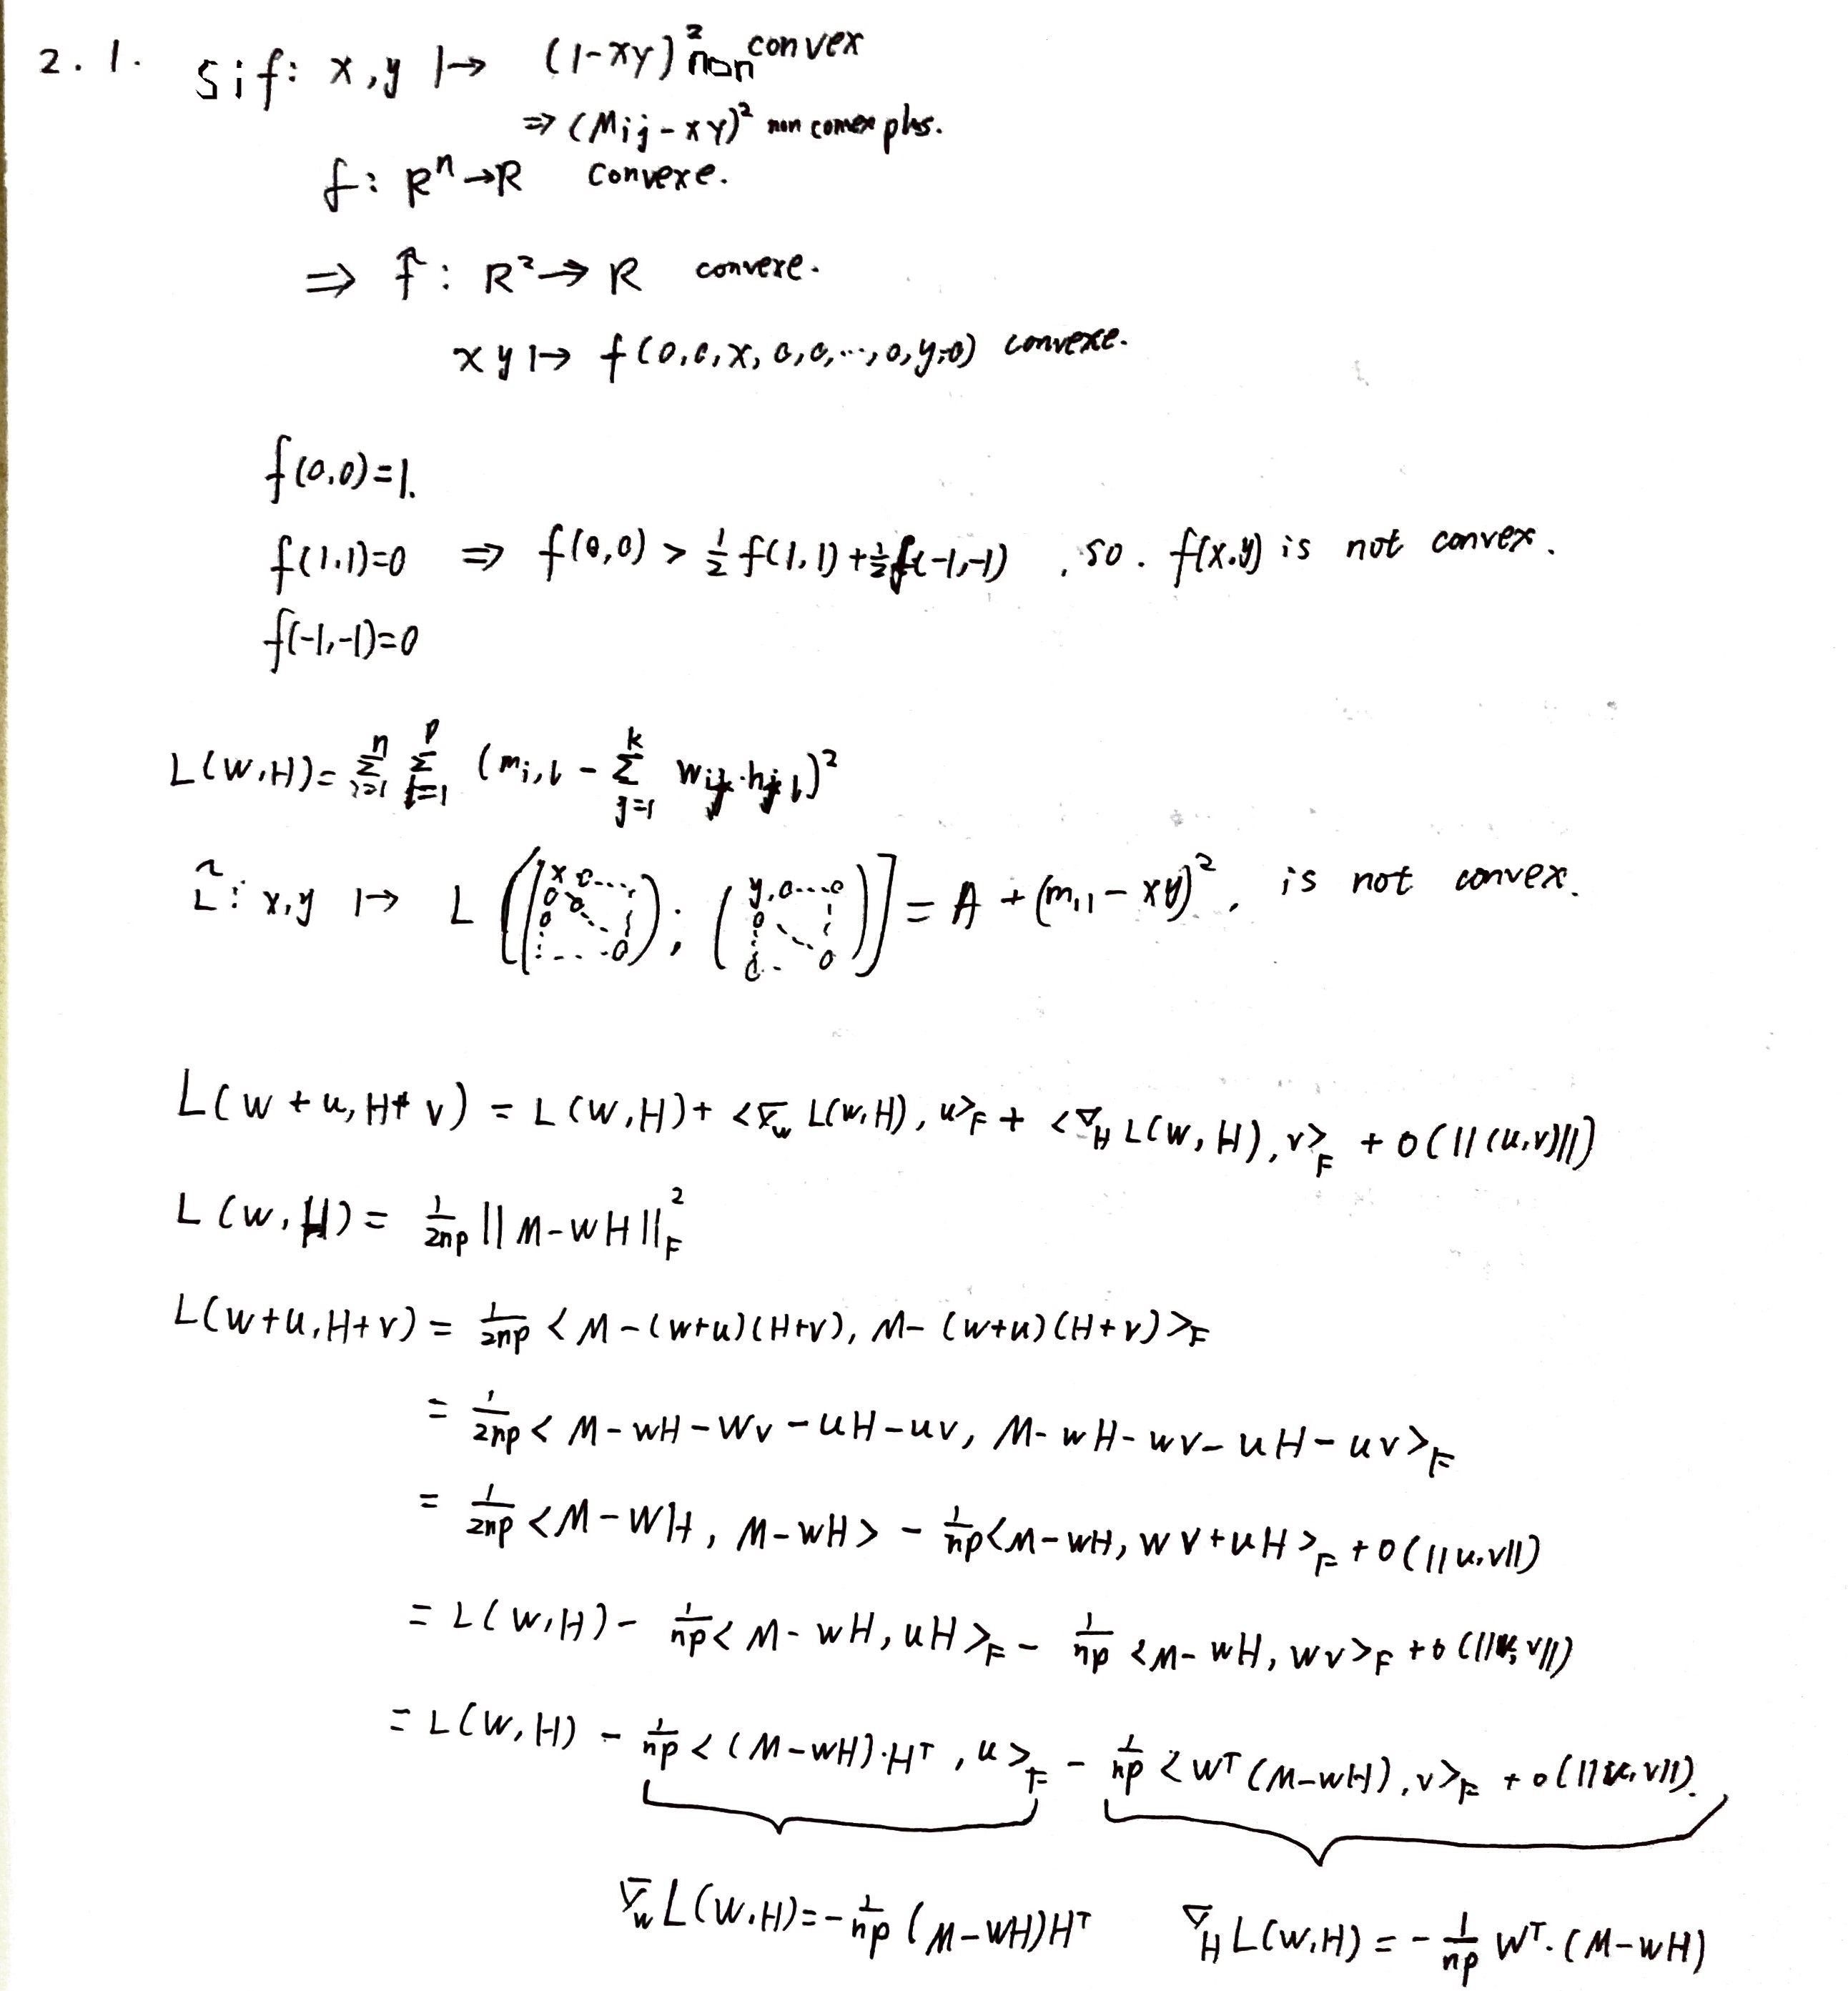 2.1. Si f: x,y ↦ (1-xy)² non convex
⇒ (Mij - xy)² non convex plus.
f: Rⁿ → R convexe.
⇒ f̃: R² → R convexe.
x y ↦ f(0,0,x,0,0,...,0,y,0) convexe.
f(0,0)=1.
f(1,1)=0 ⇒ f(0,0) > 1/2 f(1,1) + 1/2 f(-1,-1), so. f(x,y) is not convex.
f(-1,-1)=0
L(W,H) = Σ_{i=1}^{n} Σ_{l=1}^{p} (m_{i,l} - Σ_{j=1}^{k} w_{ij}·h_{jl})²
L̃: x,y ↦ L((x 0 ... 0 0 ... 0); (y,0...0 0 ... 0)) = A + (m₁₁ - xy)², is not convex.
L(W+u, H+v) = L(W,H) + <∇_W L(W,H), u>_F + <∇_H L(W,H), v>_F + o(||(u,v)||)
L(W,H) = 1/2np ||M-WH||²_F
L(W+u,H+v) = 1/2np <M-(W+u)(H+v), M-(W+u)(H+v)>_F
= 1/2np <M-WH-Wv-uH-uv, M-WH-Wv-uH-uv>_F
= 1/2np <M-WH, M-WH> - 1/np <M-WH, Wv+uH>_F + o(||u,v||)
= L(W,H) - 1/np <M-WH, uH>_F - 1/np <M-WH, Wv>_F + o(||u,v||)
= L(W,H) - 1/np <(M-WH)·Hᵀ, u>_F - 1/np <Wᵀ(M-WH), v>_F + o(||u,v||).
∇_W L(W,H) = -1/np (M-WH)Hᵀ ∇_H L(W,H) = -1/np Wᵀ·(M-WH)